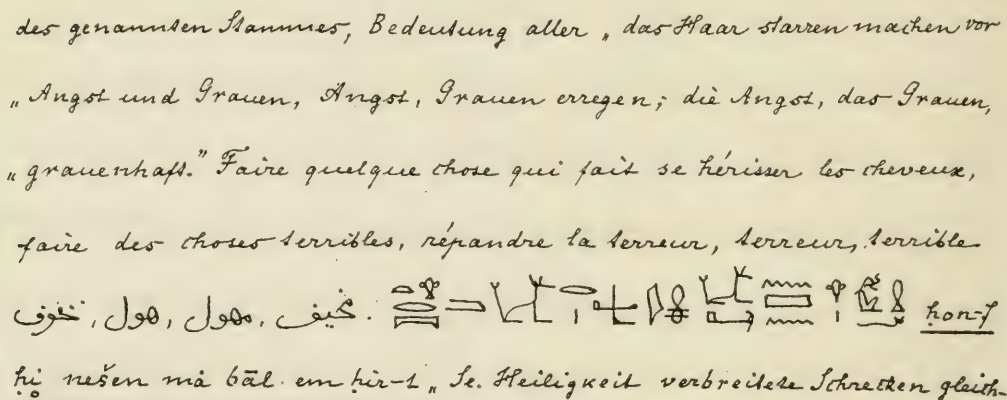 des genannten Stammes, Bedeutung aller „das Haar starren machen vor
„Angst und Grauen, Angst, Grauen erregen; die Angst, das Grauen,
„grauenhaft.” Faire quelque chose qui fait se hérisser les cheveux,
faire des choses terribles, répandre la terreur, terreur, terrible
مخيف, مهول, هول, تخوف. ḥon-f
ḥi nešen må bāl em ḥir-t „Se. Heiligkeit verbreitete Schrecken gleich-